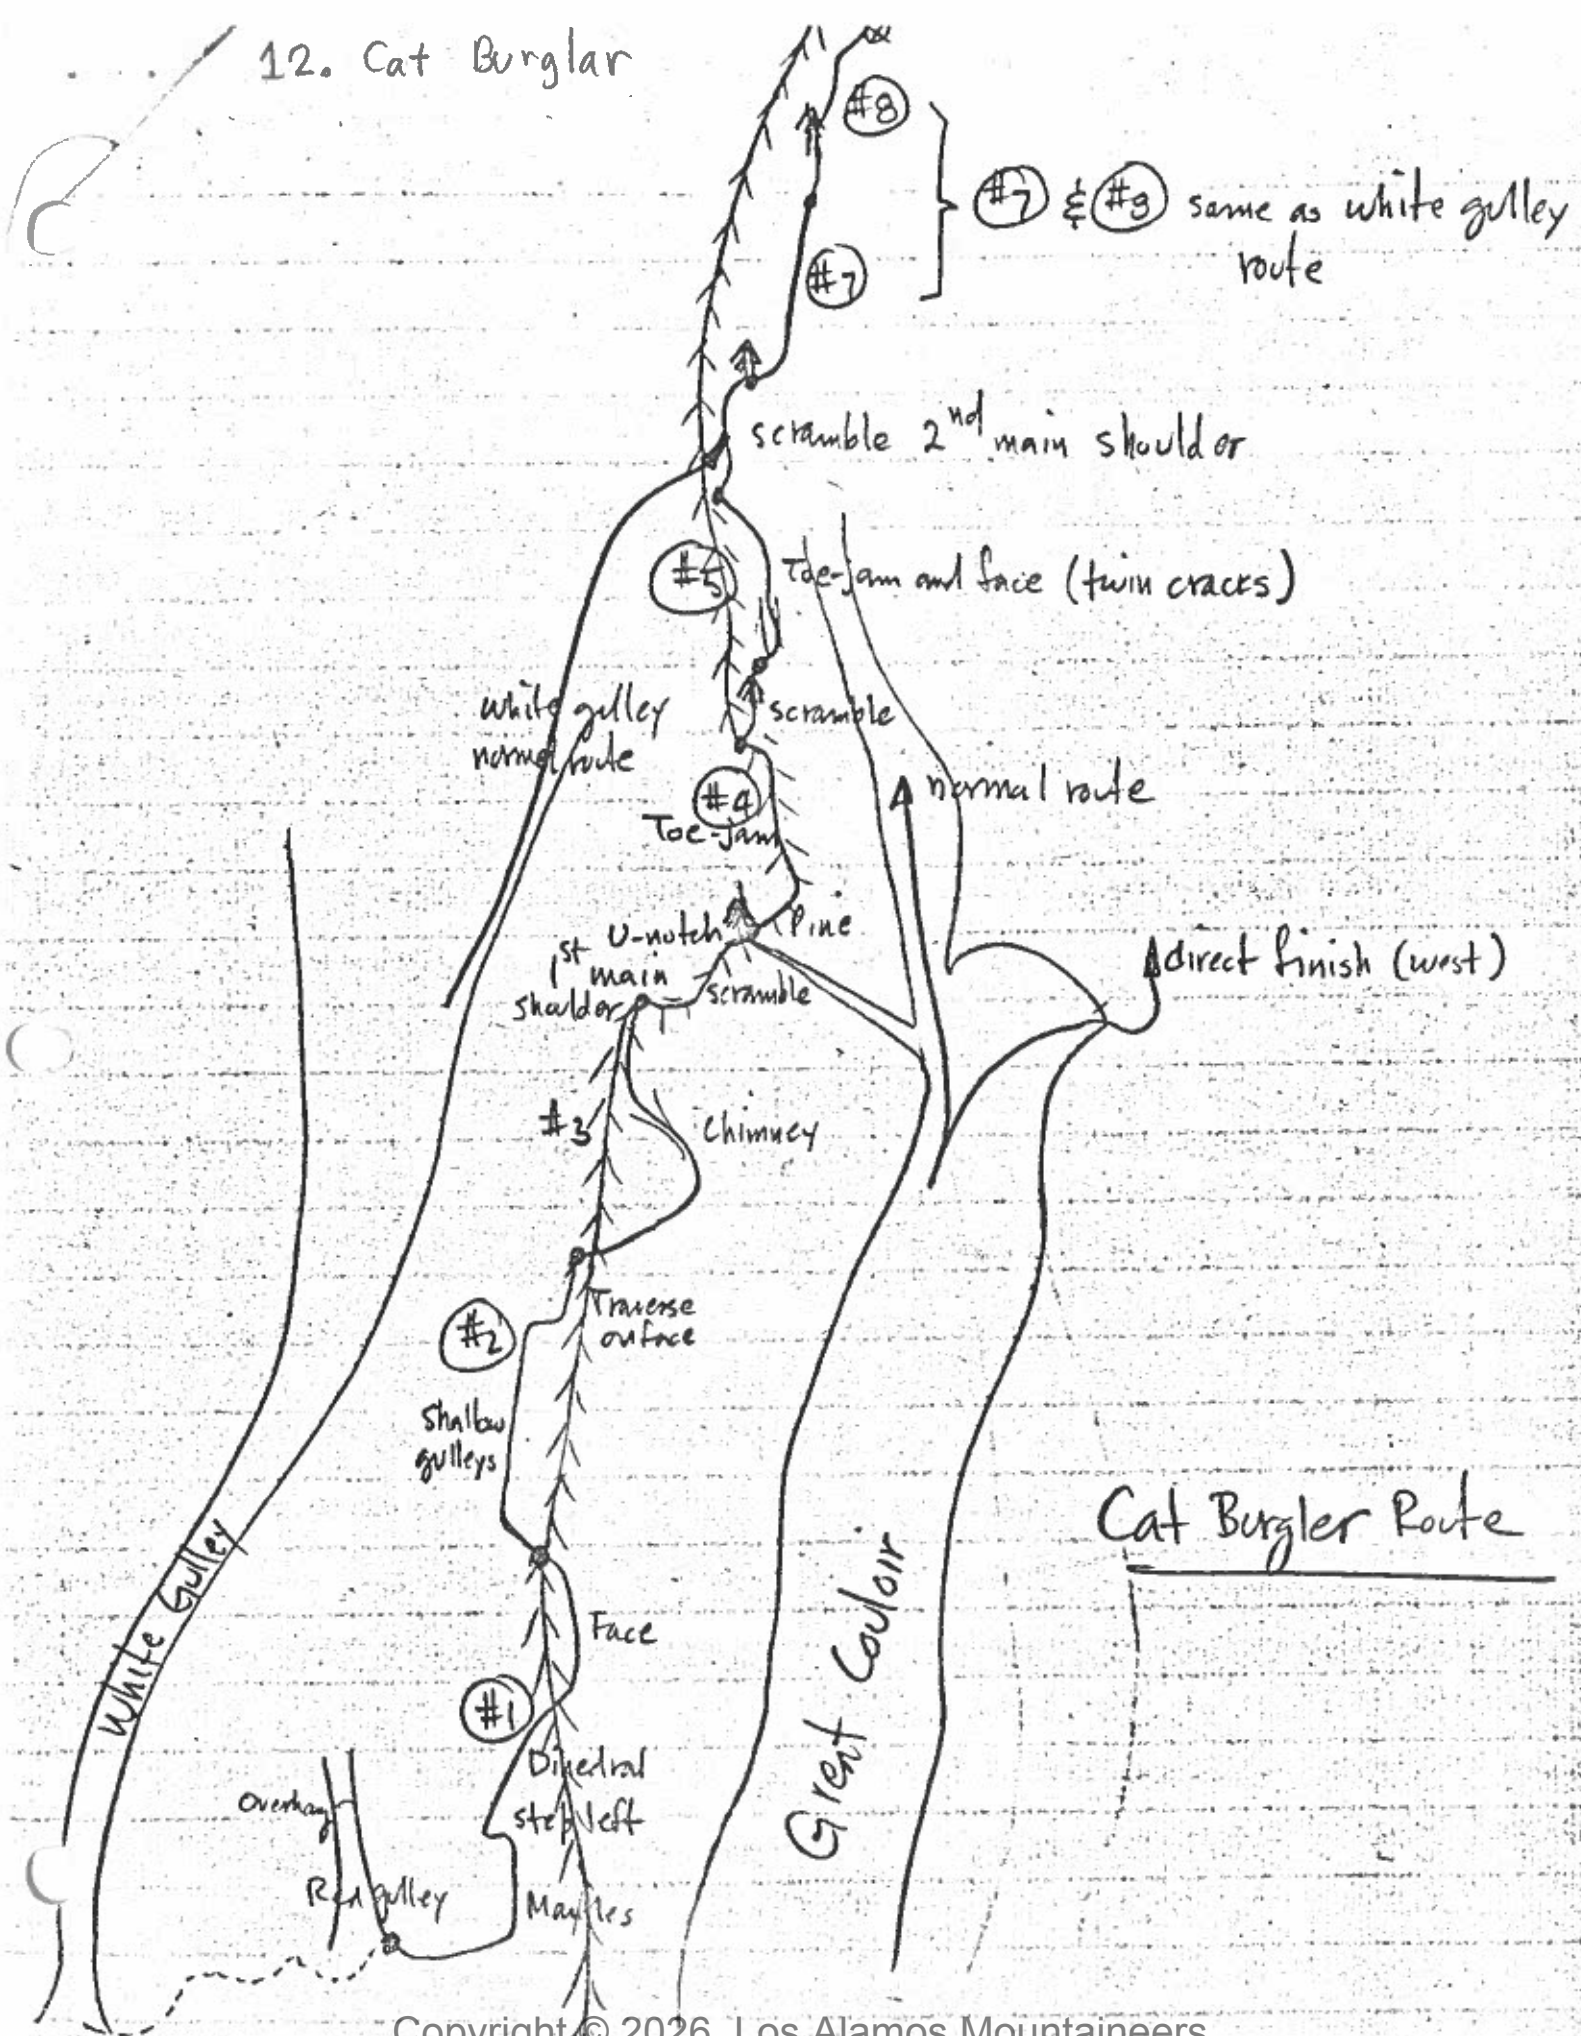 12. Cat Burglar
#8
#7 & #8 same as white gulley
route
#7
scramble 2nd main shoulder
#5
Toe-jam and face (twin cracks)
white gulley
normal route
scramble
#4
Toe-jam
normal route
U-notch
Pine
1st main
shoulder
scramble
direct finish (west)
#3
Chimney
#2
Traverse
on face
Shallow
gulleys
Cat Burgler Route
White Gulley
Face
Great Couloir
#1
Dihedral
step left
Overhang
Red gulley
Mantles
Copyright © 2026, Los Alamos Mountaineers